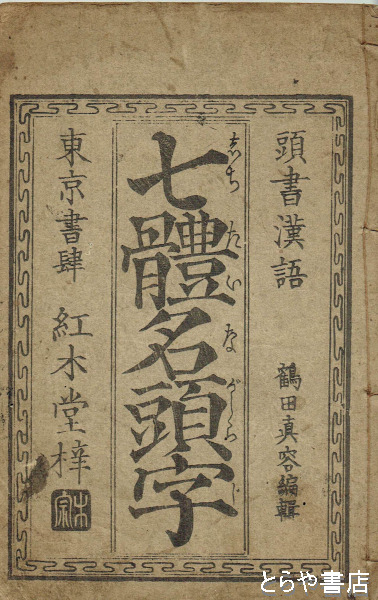 頭書漢語
鶴田真容編輯
七體名頭字
志ちたいながしらじ
東京書肆 紅木堂梓
とらや書店